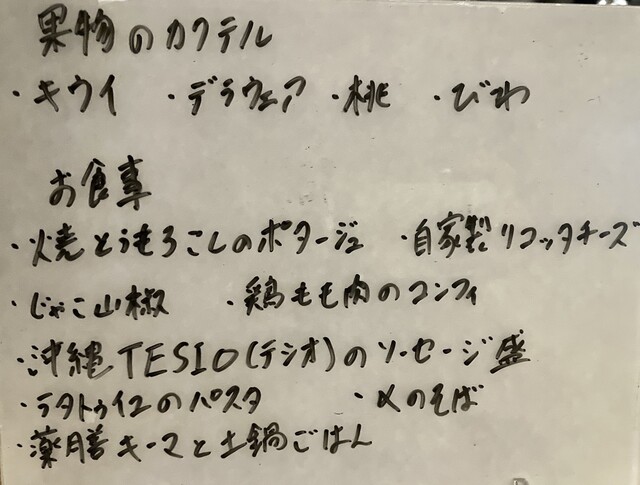 果物のカクテル
・キウイ ・デラウェア ・桃 ・びわ
お食事
・焼とうもろこしのポタージュ ・自家製リコッタチーズ
・じゃこ山椒 ・鶏もも肉のコンフィ
・沖縄TESIO(テシオ)のソーセージ盛
・ラタトゥイユのパスタ ・〆のそば
・薬膳キーマと土鍋ごはん